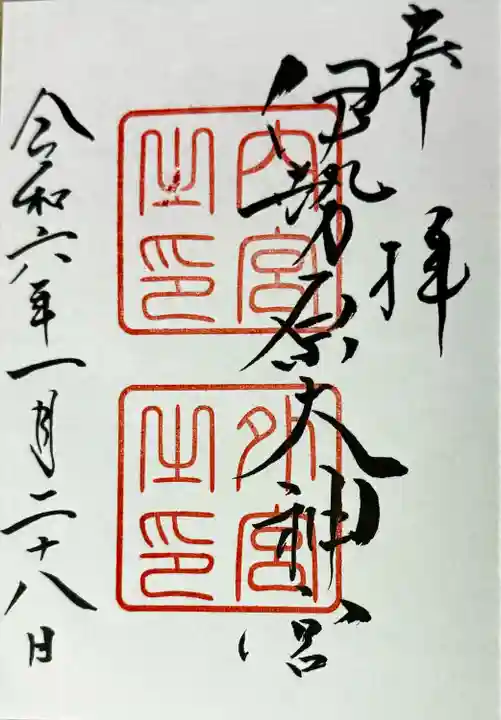 奉拝
伊勢原大神宮
内宮
之印
外宮
之印
令和六年一月二十八日